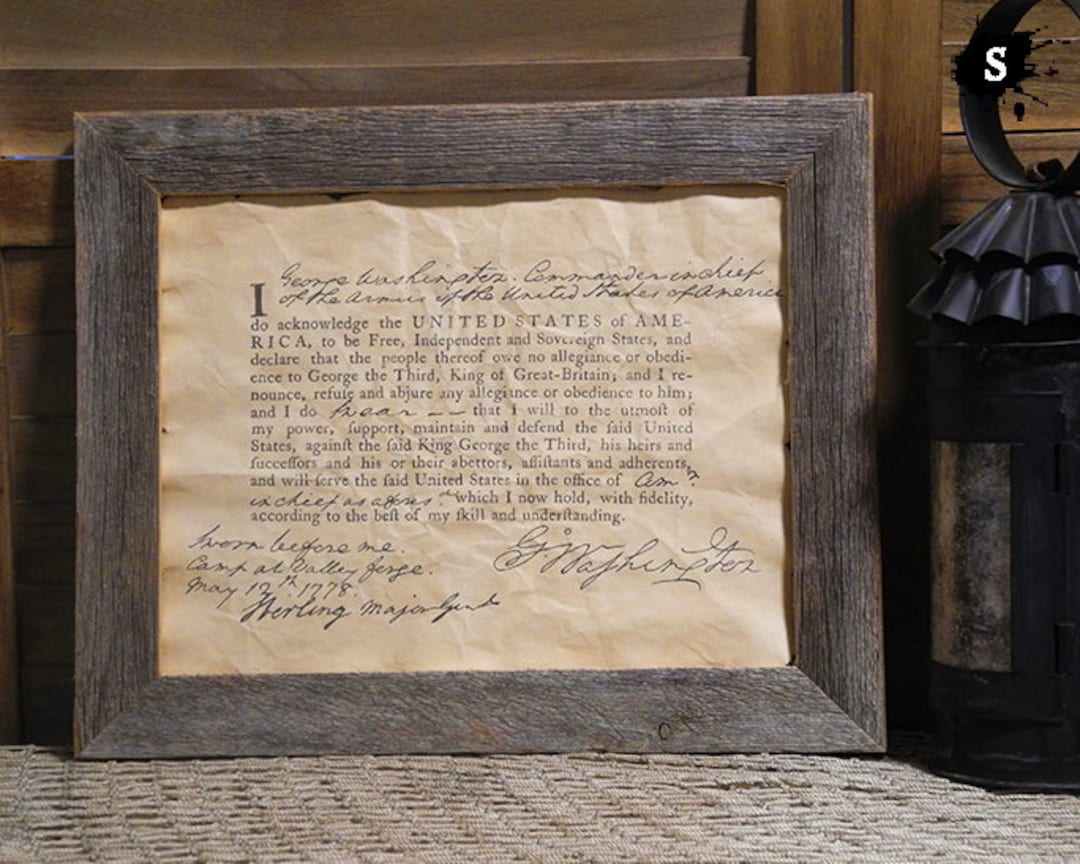 S
George Washington. Commander in chief
of the Armies of the United States of America
I
do acknowledge the UNITED STATES of AME-
RICA, to be Free, Independent and Sovereign States, and
declare that the people thereof owe no allegiance or obedi-
ence to George the Third, King of Great-Britain; and I re-
nounce, refuſe and abjure any allegiance or obedience to him;
and I do swear -- that I will to the utmoſt of
my power, ſupport, maintain and defend the ſaid United
States, againſt the ſaid King George the Third, his heirs and
ſucceſſors and his or their abettors, aſſiſtants and adherents,
and will ſerve the ſaid United States in the office of Com.r
in chief as afores.d which I now hold, with fidelity,
according to the beſt of my ſkill and underſtanding.
Sworn before me.
Camp at Valley forge.
May 12th. 1778.
Sterling Major Genl
Go. Waſhington